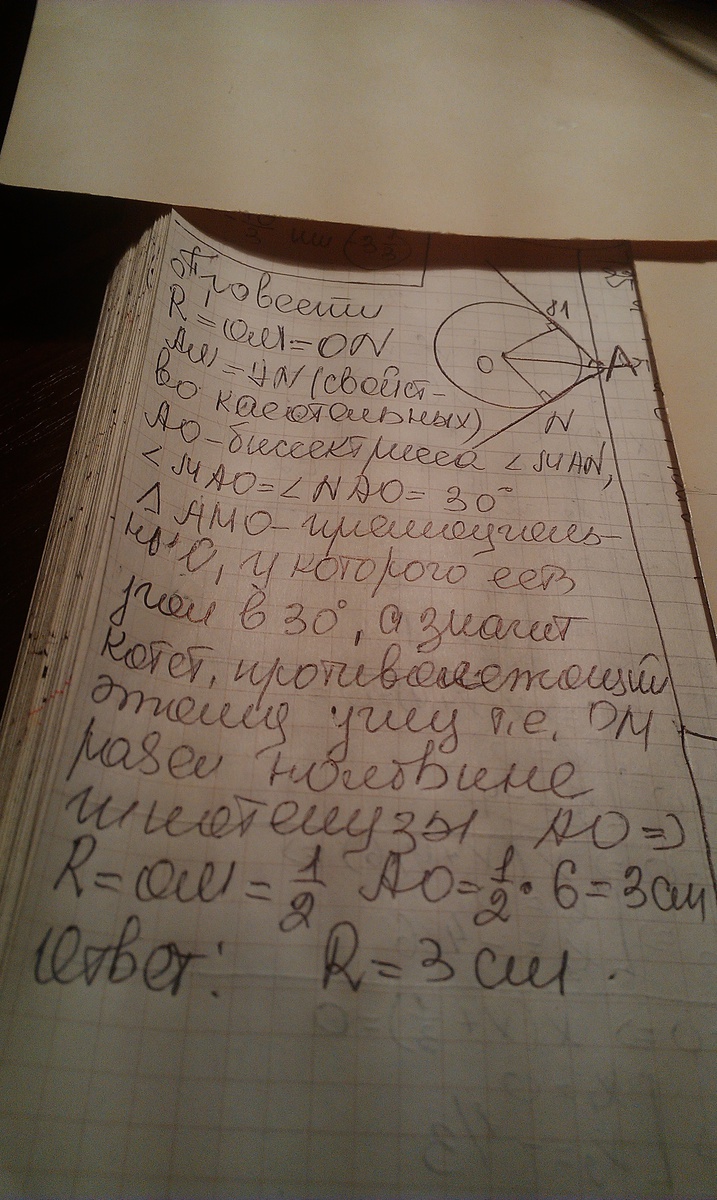 Провести
R = OM = ON
AM = AN (свойст-
во касательных)
AO - биссектриса ∠MAN,
∠MAO = ∠NAO = 30°
△ AMO - прямоуголь-
ный, у которого есть
угол в 30°, а значит
катет, противолежащий
этому углу т.е. OM
равен половине
гипотенузы AO =>
R = OM = 1/2 AO = 1/2 · 6 = 3 см
Ответ: R = 3 см.
M
O
A
N